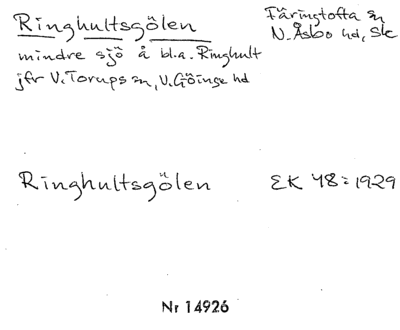 Ringhultsgölen
Färingtofta sn
N. Åsbo hd, Sk
mindre sjö å bl.a. Ringhult
jfr V. Torups sn, V. Göinge hd
Ringhultsgölen
EK 48:1929
Nr 14926